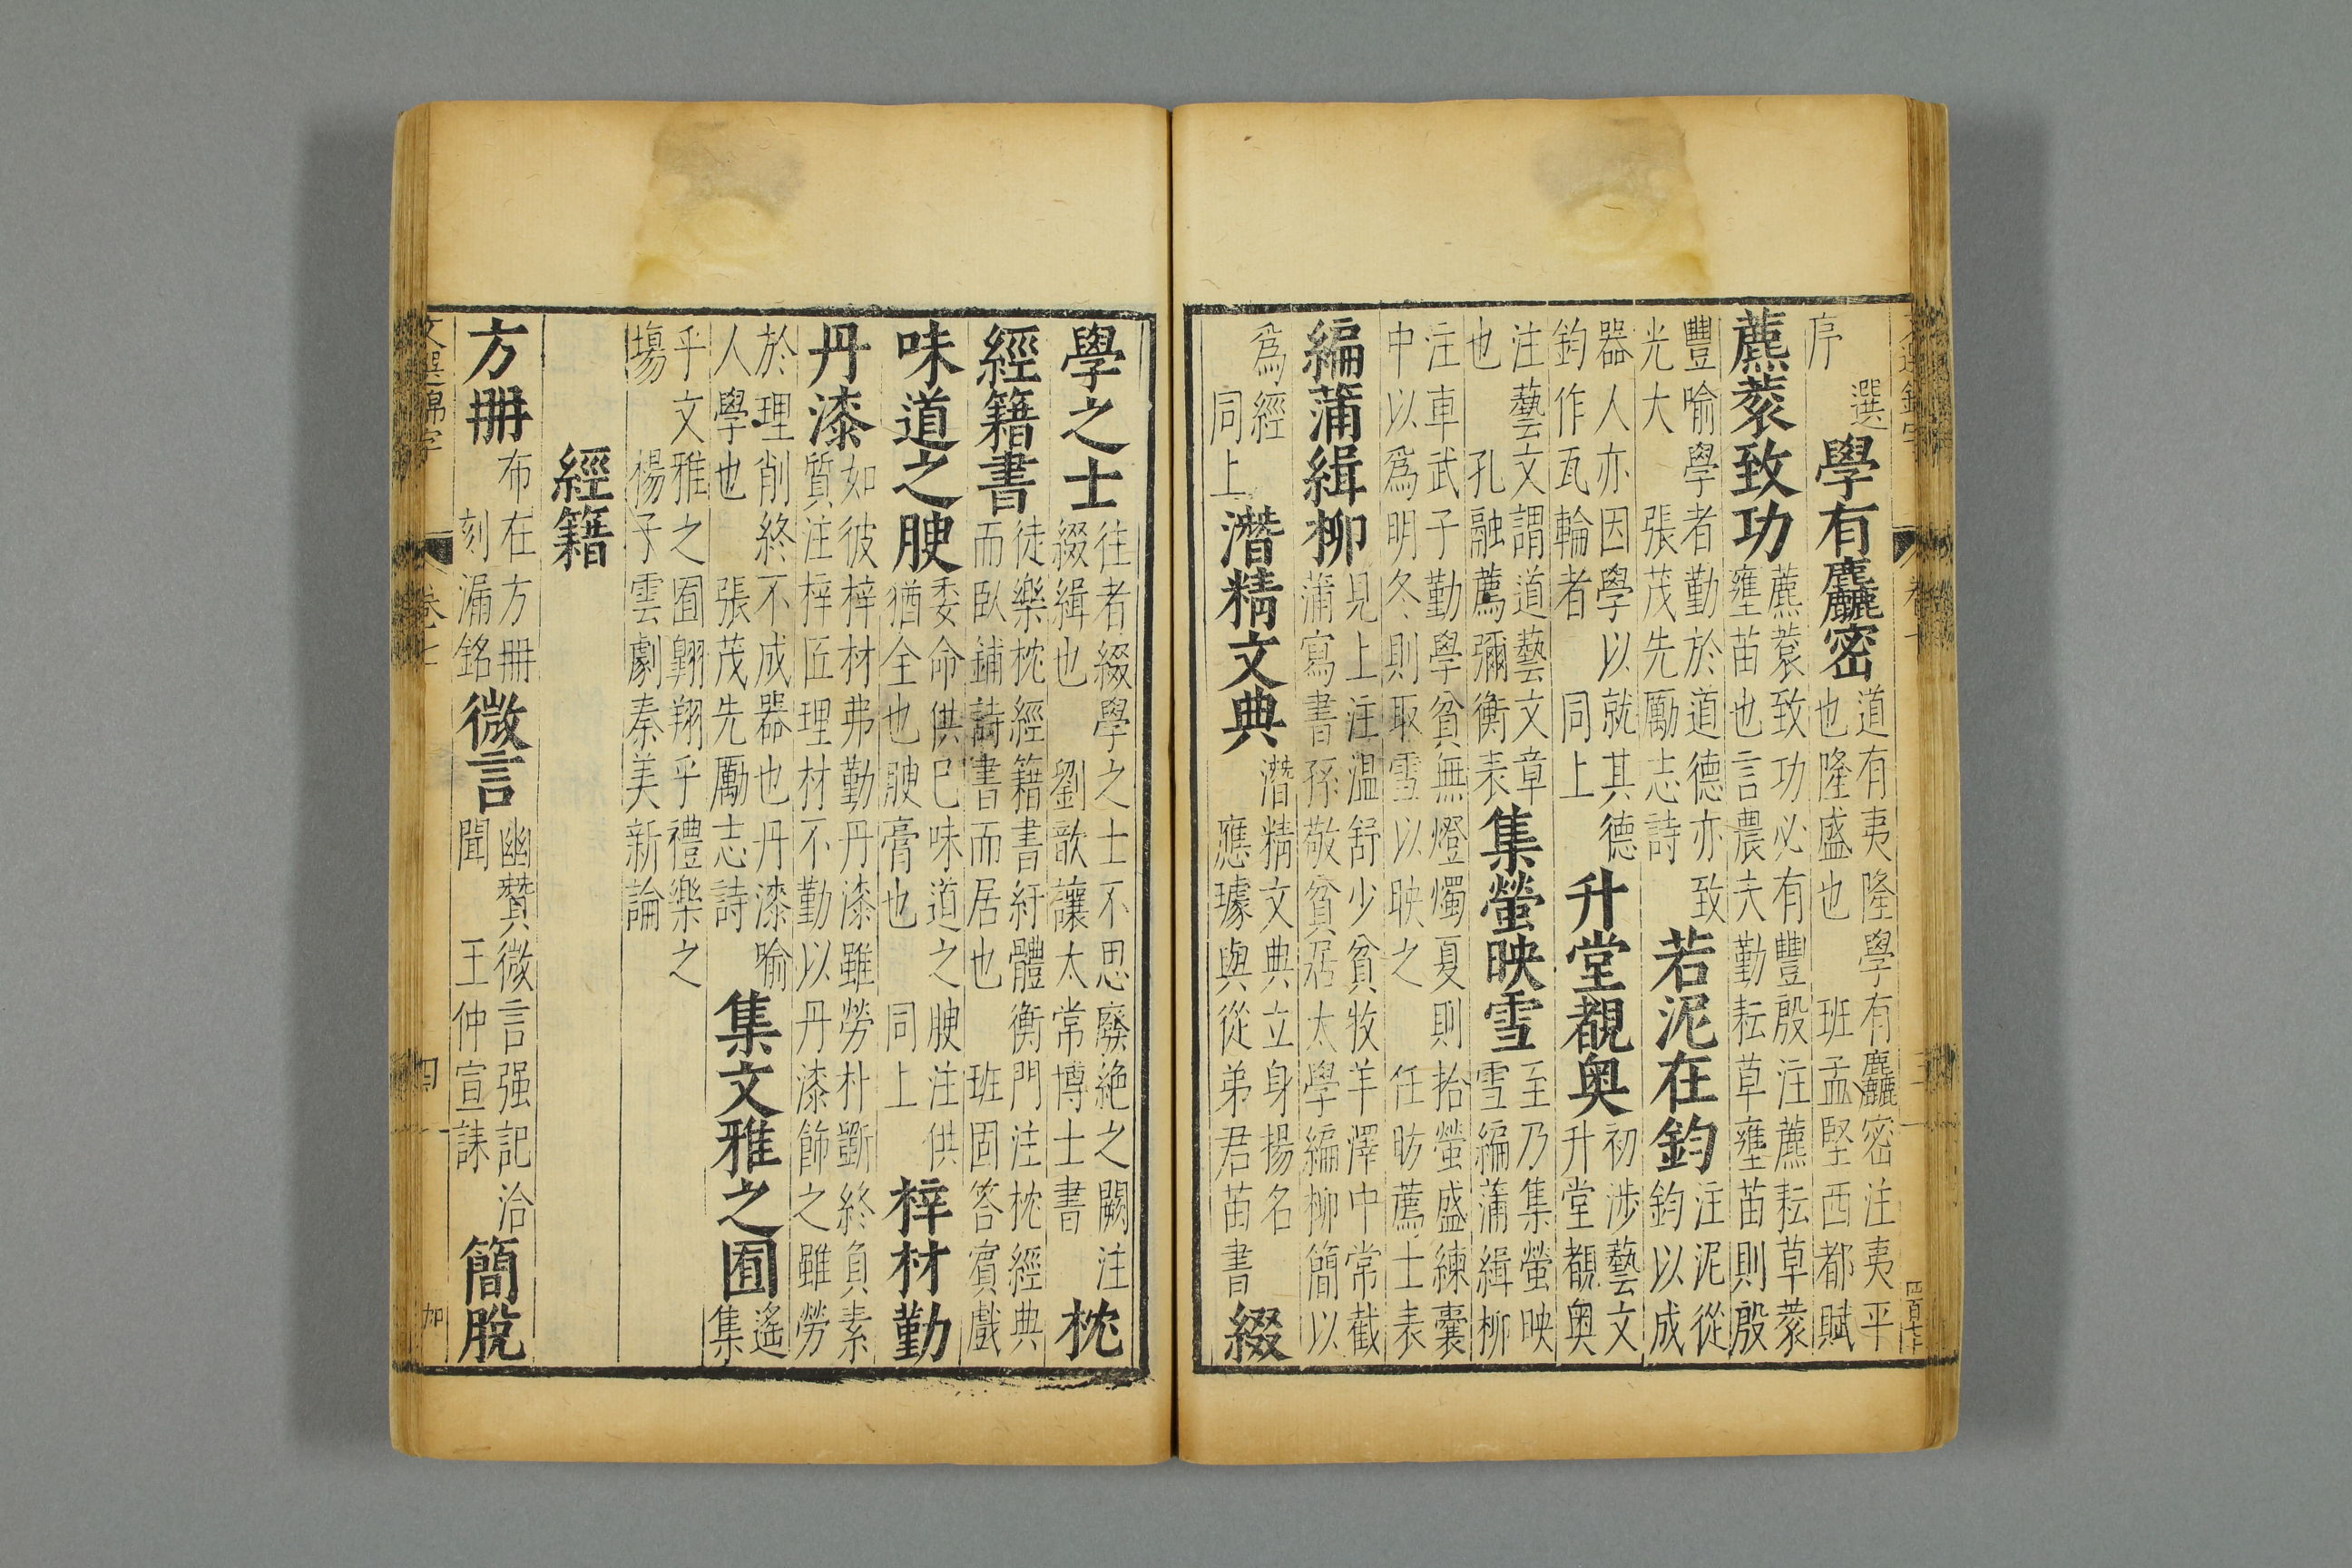 選序 學有麤密 道有夷隆學有麤密注夷平也隆盛也 班孟堅西都賦
藨蓘致功 藨蓘致功必有豐殷注藨耘草蓘壅苗也言農夫勤耘草壅苗則殷
豐喻學者勤於道德亦致光大 張茂先勵志詩 若泥在鈞 注泥從鈞以成
器人亦因學以就其德鈞作瓦輪者 同上 升堂覩奥 初涉藝文升堂覩奥
注藝文謂道藝文章也 孔融薦彌衡表 集螢映雪 至乃集螢映雪編蒲緝柳
注車武子勤學貧無燈燭夏則拾螢盛練囊中以爲明冬則取雪以映之 任昉薦士表
編蒲緝柳 見上注溫舒少貧牧羊澤中常截蒲寫書孫敬貧居太學編柳簡以
爲經 同上 潛精文典 潛精文典立身揚名 應璩與從弟君苗書 綴
學之士 往者綴學之士不思廢絶之闕注綴緝也 劉歆讓太常博士書 枕
經籍書 徒樂枕經籍書紆體衡門注枕經典而臥鋪詩書而居也 班固荅賓戲
味道之腴 委命供已味道之腴注供猶全也腴膏也 同上 梓材勤
丹漆 如彼梓材弗勤丹漆雖勞朴斵終負素質注梓匠理材不勤以丹漆飾之雖勞
於理削終不成器也丹漆喻人學也 張茂先勵志詩 集文雅之囿 遙集
乎文雅之囿翺翔乎禮樂之塲 楊子雲劇秦美新論
經籍
方冊 布在方冊 刻漏銘 微言 幽贊微言强記洽聞 王仲宣誄 簡脫
文選錦字 卷七 四 加